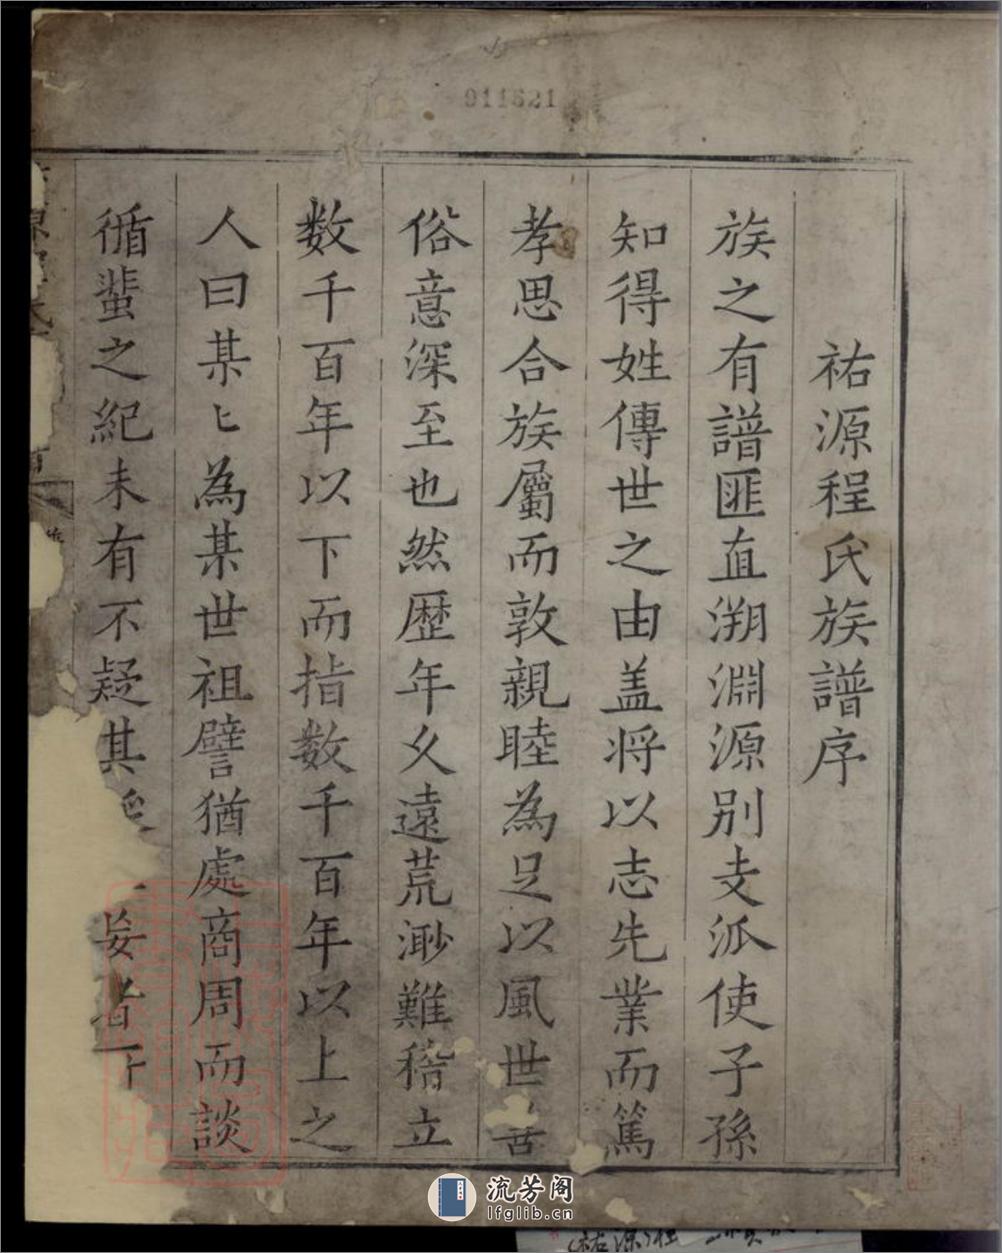 911521
祐源程氏族譜序
族之有譜匪直溯淵源别支派使子孫
知得姓傳世之由盖将以志先業而篤
孝思合族屬而敦親睦為足以風世善
俗意深至也然歴年久遠荒渺難稽立
数千百年以下而指数千百年以上之
人曰某匕為某世祖譬猶處商周而談
循蜚之紀未有不疑其
妄者
流芳阁
lfglib.cn